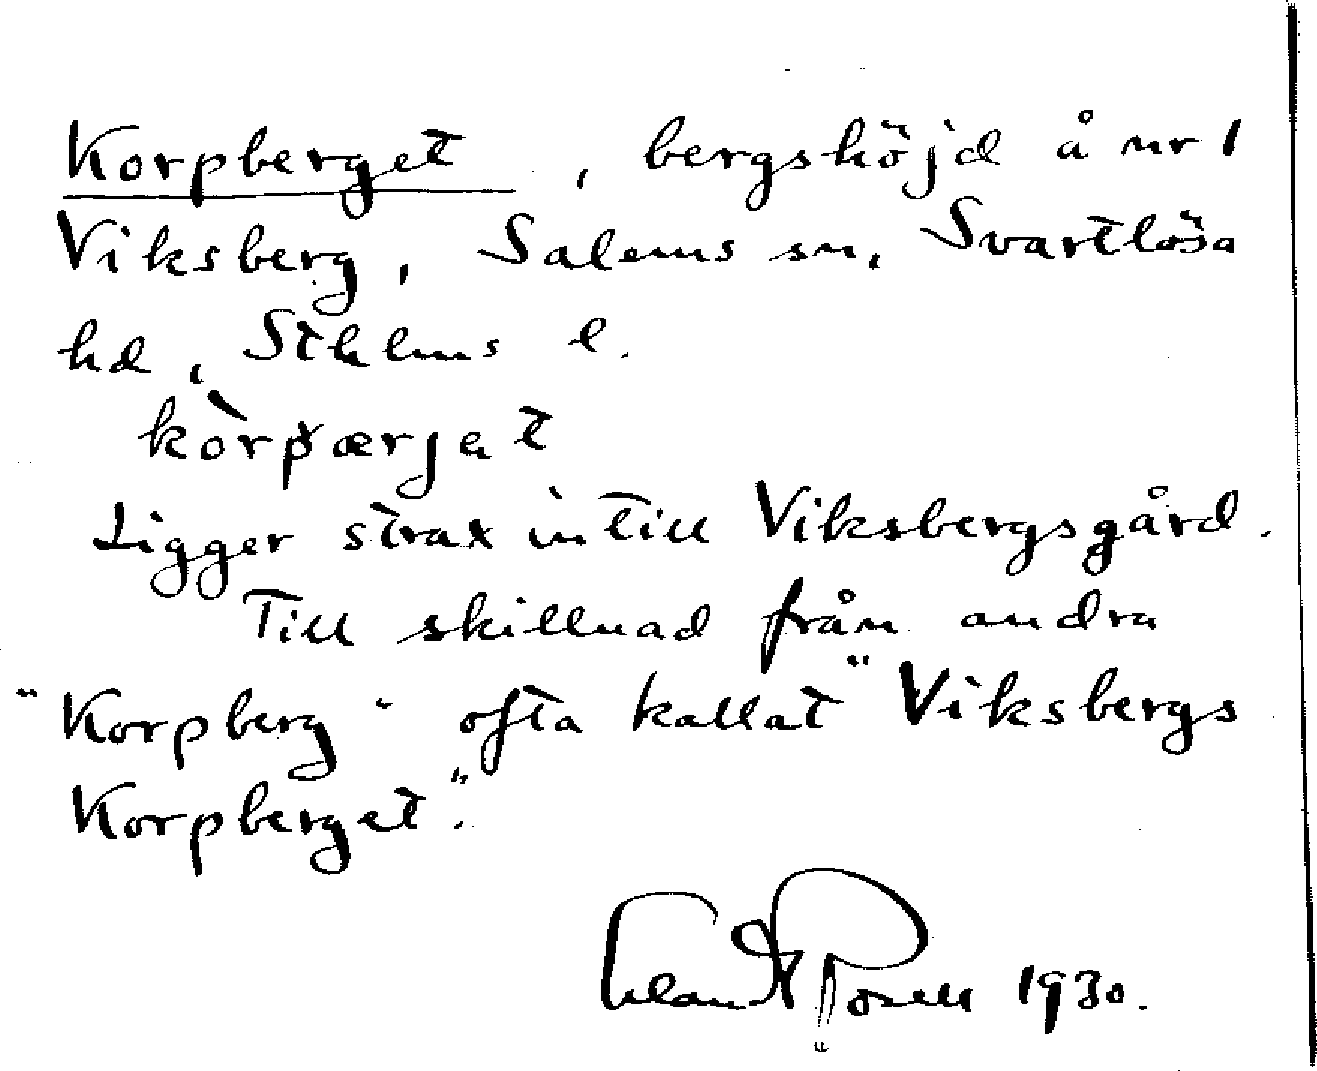 Korpberget, bergshöjd å nr 1
Viksberg, Salems sn, Svartlösa
hd, Sthlms l.
kòrpærjet
Ligger strax intill Viksbergsgård.
Till skillnad från andra
"Korpberg" ofta kallat "Viksbergs
Korpberget".
1930.